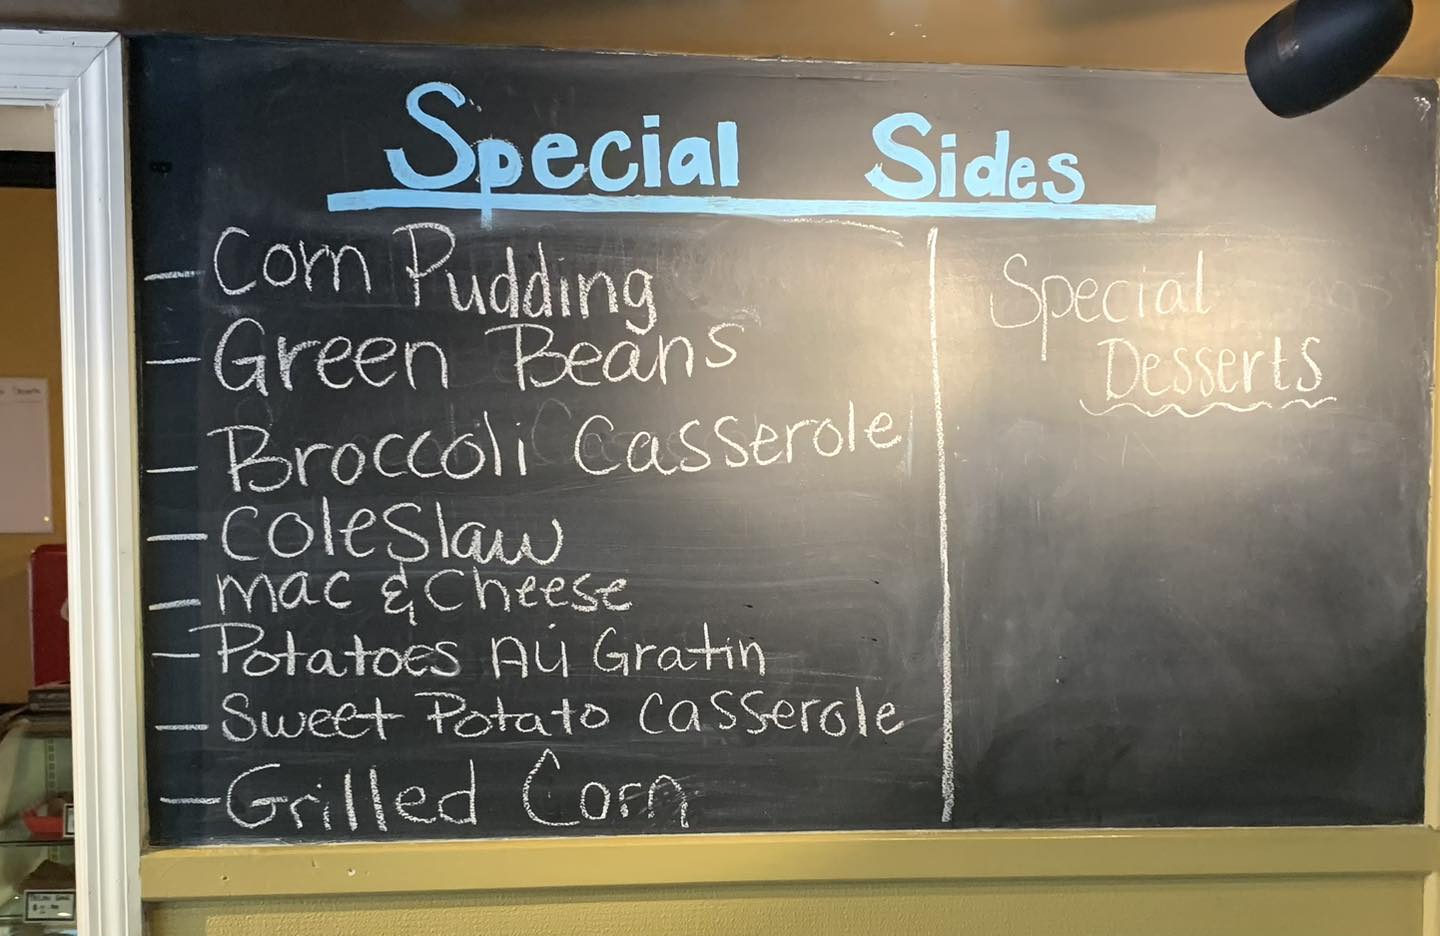 Special Sides
- Corn Pudding
- Green Beans
- Broccoli Casserole
- ColeSlaw
- Mac & Cheese
- Potatoes Au Gratin
- Sweet Potato Casserole
- Grilled Corn
Special
Desserts